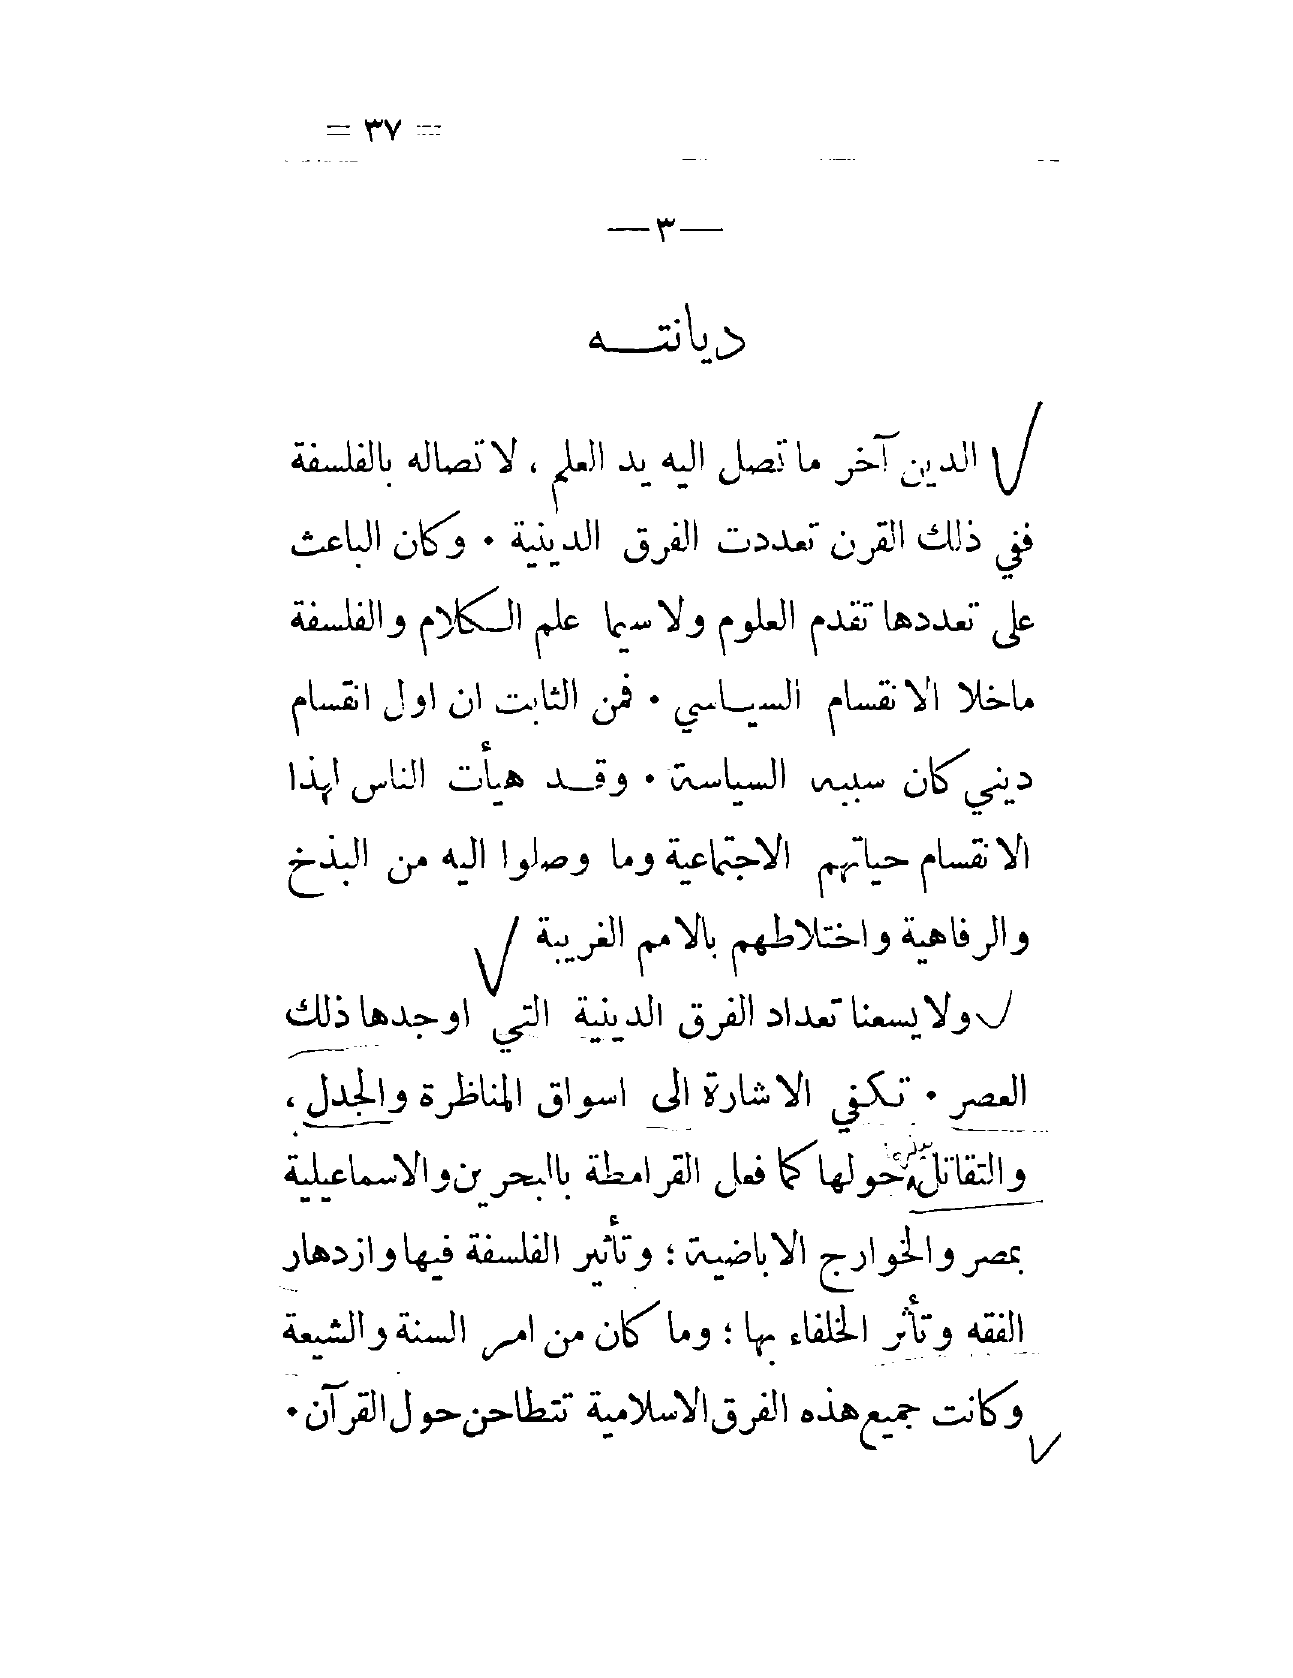 = ٣٧ =
—٣—
ديانته
الدين آخر ما تصل اليه يد العلم ، لاتصاله بالفلسفة
ففي ذلك القرن تعددت الفرق الدينية . وكان الباعث
على تعددها تقدم العلوم ولا سيما علم الكلام والفلسفة
ماخلا الانقسام السياسي . فمن الثابت ان اول انقسام
ديني كان سببه السياسة . وقد هيأت الناس لهذا
الانقسام حياتهم الاجتماعية وما وصلوا اليه من البذخ
والرفاهية واختلاطهم بالامم الغريبة
ولا يسعنا تعداد الفرق الدينية التي اوجدها ذلك
العصر . تكفي الاشارة الى اسواق المناظرة والجدل ،
والتقاتل حولها كما فعل القرامطة بالبحرين والاسماعيلية
بمصر والخوارج الاباضية ؛ وتأثير الفلسفة فيها وازدهار
الفقه وتأثر الخلفاء بها ؛ وما كان من امر السنة والشيعة
وكانت جميع هذه الفرق الاسلامية تتطاحن حول القرآن .